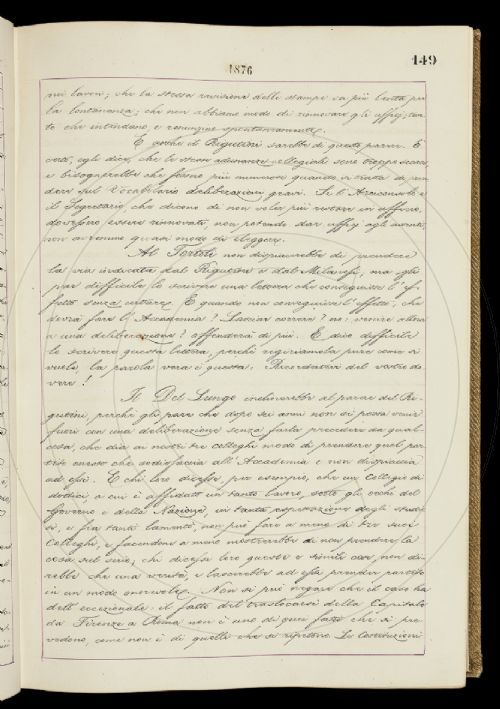 149
1876
nei lavori; che la stessa revisione delle stampe va più lenta per
la lontananza; che non abbiamo modo di rinnovare gli uffizj, tan-
to che intendano e
E anche il Rigutini sarebbe di questo parere. E
certo, egli dice, che le stesse adunanze collegiali sono troppo scarse,
e bisognerebbe che fossero più numerose quando si tratta di pren-
dere sul Vocabolario deliberazioni gravi. Se l'Arciconsolo e
il Segretario, che dicono di non voler più restare in uffizio,
dovessero essere rinnovati, non potendo dar uffizj agli assenti,
non avremmo quasi modo di eleggere.
Al Tortoli non dispiacerebbe di prendere
la via indicata dal Rigutini e dal Milanesi, ma gli
par difficile lo scrivere una lettera che conseguisse l'ef-
fetto senza urtare. E quando non conseguisse l'effetto, che
dovrà fare l'Accademia? Lasciar correre? no: venire allora
a una deliberazione? offenderà di più. E dico difficile
lo scrivere questa lettera, perchè rigiriamola pure come si
vuole, la parola vera è questa: Ricordatevi del vostro do-
vere!
Il Del Lungo inclinerebbe al parere del Ri-
gutini, perchè gli pare che dopo sei anni non si possa venir
fuori con una deliberazione senza farla precedere da qual-
cosa, che dia ai nostri tre colleghi modo di prendere quel par-
tito onesto che sodisfaccia all'Accademia e non dispiaccia
ad essi. E chi loro dicesse, per esempio, che un Collegio di
dodici, a cui è affidato un tanto lavoro, sotto gli occhi del
Governo e della Nazione, in tanta espettazione degli studio-
si, e fra tanti lamenti, non può fare a meno di tre suoi
Colleghi, e facendone a meno mostrerebbe di non prendere la
cosa sul serio; chi dicesse loro queste e simili cose, non di-
rebbe che una verità, e lascerebbe ad essi prender partito
in un modo onorevole. Non si può negare che il caso ha
dell'eccezionale: il fatto del traslocarsi della Capitale
da Firenze a Roma non è uno di quei fatti che si pre-
vedono, come non è di quelli che si ripetono. Le Costituzioni